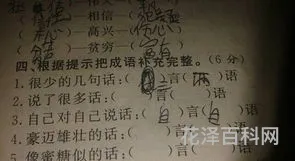 —相信(
—高兴(伤心)
—贫穷(富有
四、根据提示把成语补充完整。(6分)
1.很少的几句话:(三)言(两)语
2.说了很多话:( )言( )语
3.自己对自己说话:(自)言(自)语
4.豪迈雄壮的话:( )言( )语
5.像蜜糖似的话:( )言( )语
花泽百科网